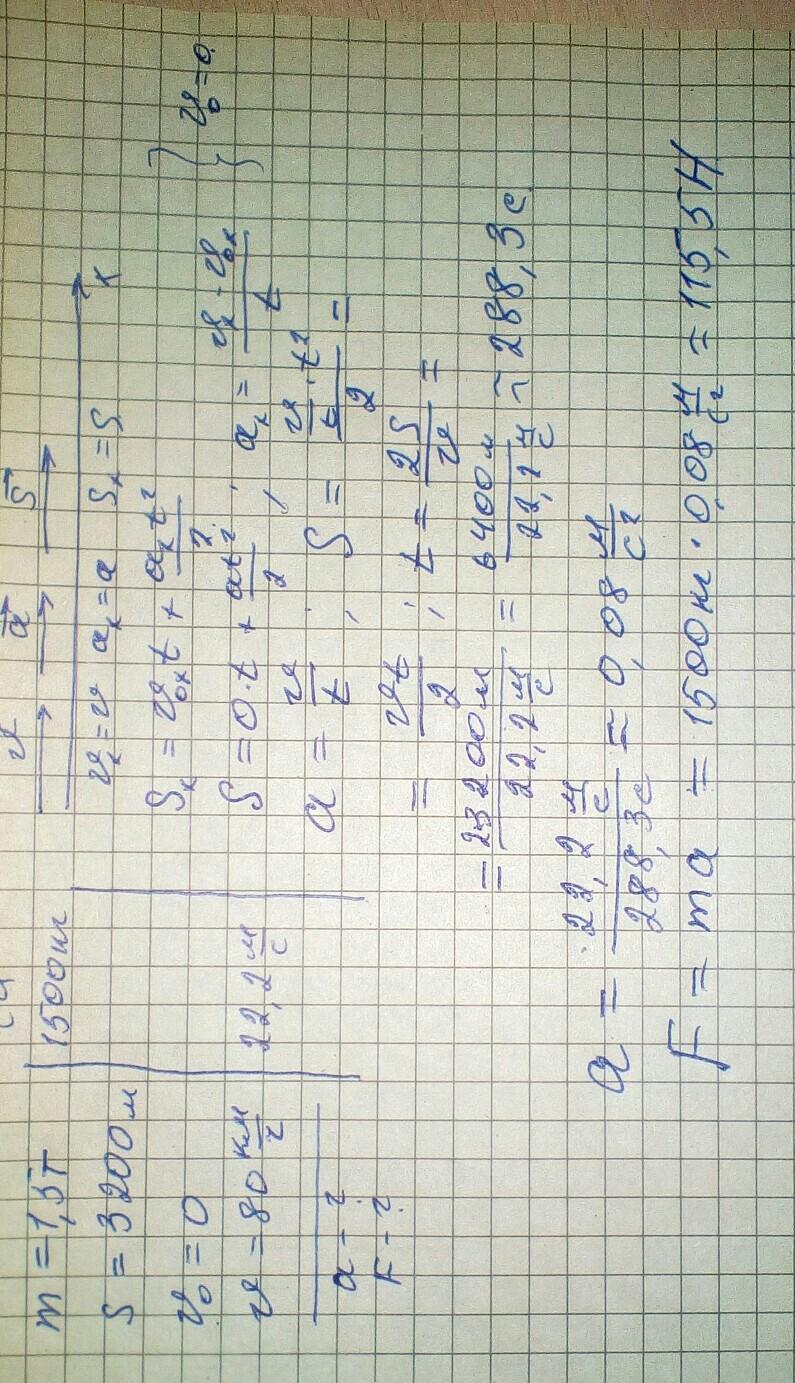 m = 1,5т | 1500 кг
S = 3200 м
v₀ = 0
v = 80 км/ч | 22,2 м/с
a - ?
F - ?
v⃗ a⃗ S⃗
x
vₓ = v aₓ = a Sₓ = S
Sₓ = v₀ₓt + aₓt²/2
S = 0·t + at²/2 ; aₓ = (vₓ - v₀ₓ)/t } v₀ = 0.
a = v/t ; S = (v/t · t²)/2 =
= vt/2 ; t = 2S/v =
= 2·3200м / 22,2 м/с = 6400м / 22,2 м/с ~ 288,3с.
a = 22,2 м/с / 288,3с = 0,08 м/с²
F = ma = 1500кг · 0,08 м/с² = 115,5Н